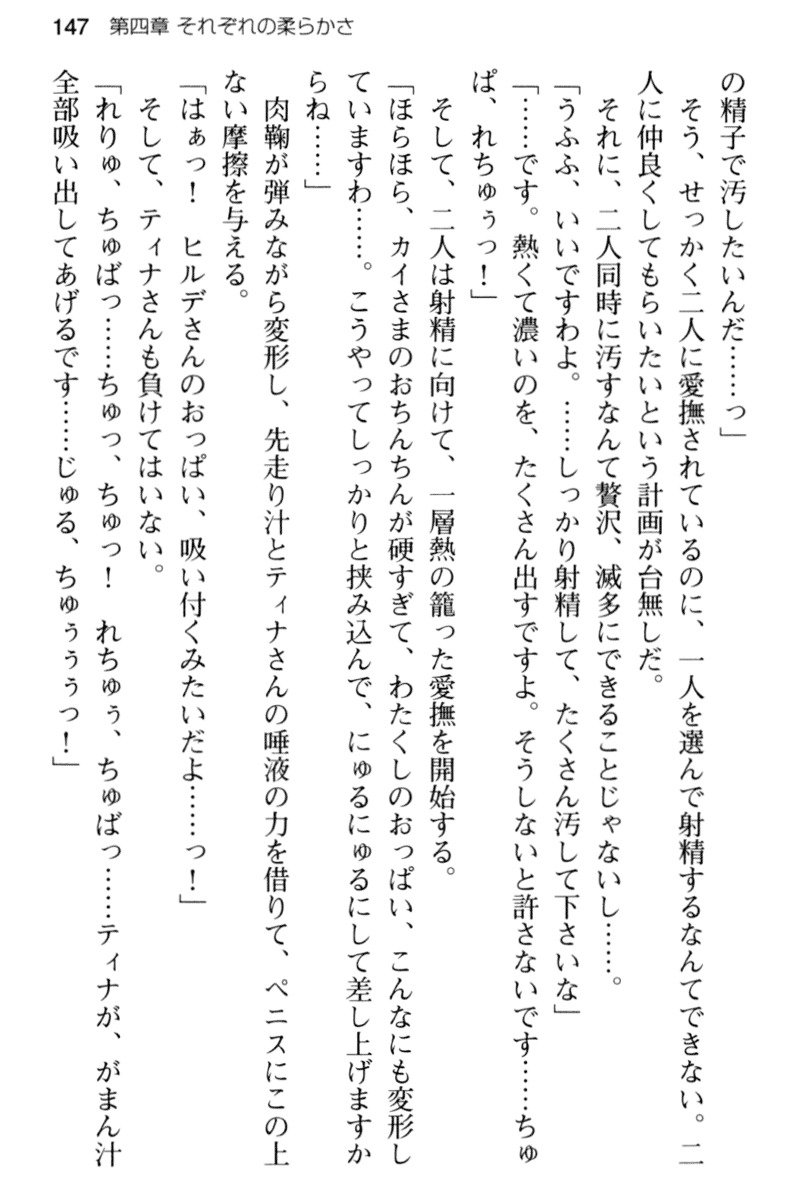 147 第四章 それぞれの柔らかさ
の精子で汚したいんだ……っ」
そう、せっかく二人に愛撫されているのに、一人を選んで射精するなんてできない。二
人に仲良くしてもらいたいという計画が台無しだ。
それに、二人同時に汚すなんて贅沢、滅多にできることじゃないし……。
「うふふ、いいですわよ。……しっかり射精して、たくさん汚して下さいな」
「……です。熱くて濃いのを、たくさん出すですよ。そうしないと許さないです……ちゅ
ぱ、れちゅぅっ！」
そして、二人は射精に向けて、一層熱の籠った愛撫を開始する。
「ほらほら、カイさまのおちんちんが硬すぎて、わたくしのおっぱい、こんなにも変形し
ていますわ……。こうやってしっかりと挟み込んで、にゅるにゅるにして差し上げますか
らね……」
肉鞠が弾みながら変形し、先走り汁とティナさんの唾液の力を借りて、ペニスにこの上
ない摩擦を与える。
「はぁっ！　ヒルデさんのおっぱい、吸い付くみたいだよ……っ！」
そして、ティナさんも負けてはいない。
「れりゅ、ちゅばっ……ちゅっ、ちゅっ！　れちゅぅ、ちゅばっ……ティナが、がまん汁
全部吸い出してあげるです……じゅる、ちゅぅぅぅっ！」